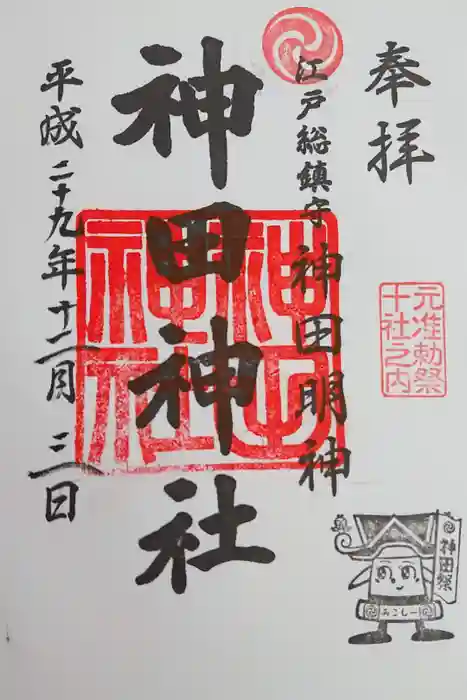 奉拝
元准勅祭
十社之内
神田祭
みこしー
江戸総鎮守神田明神
神田神社
神田神社
平成二十九年十二月三日